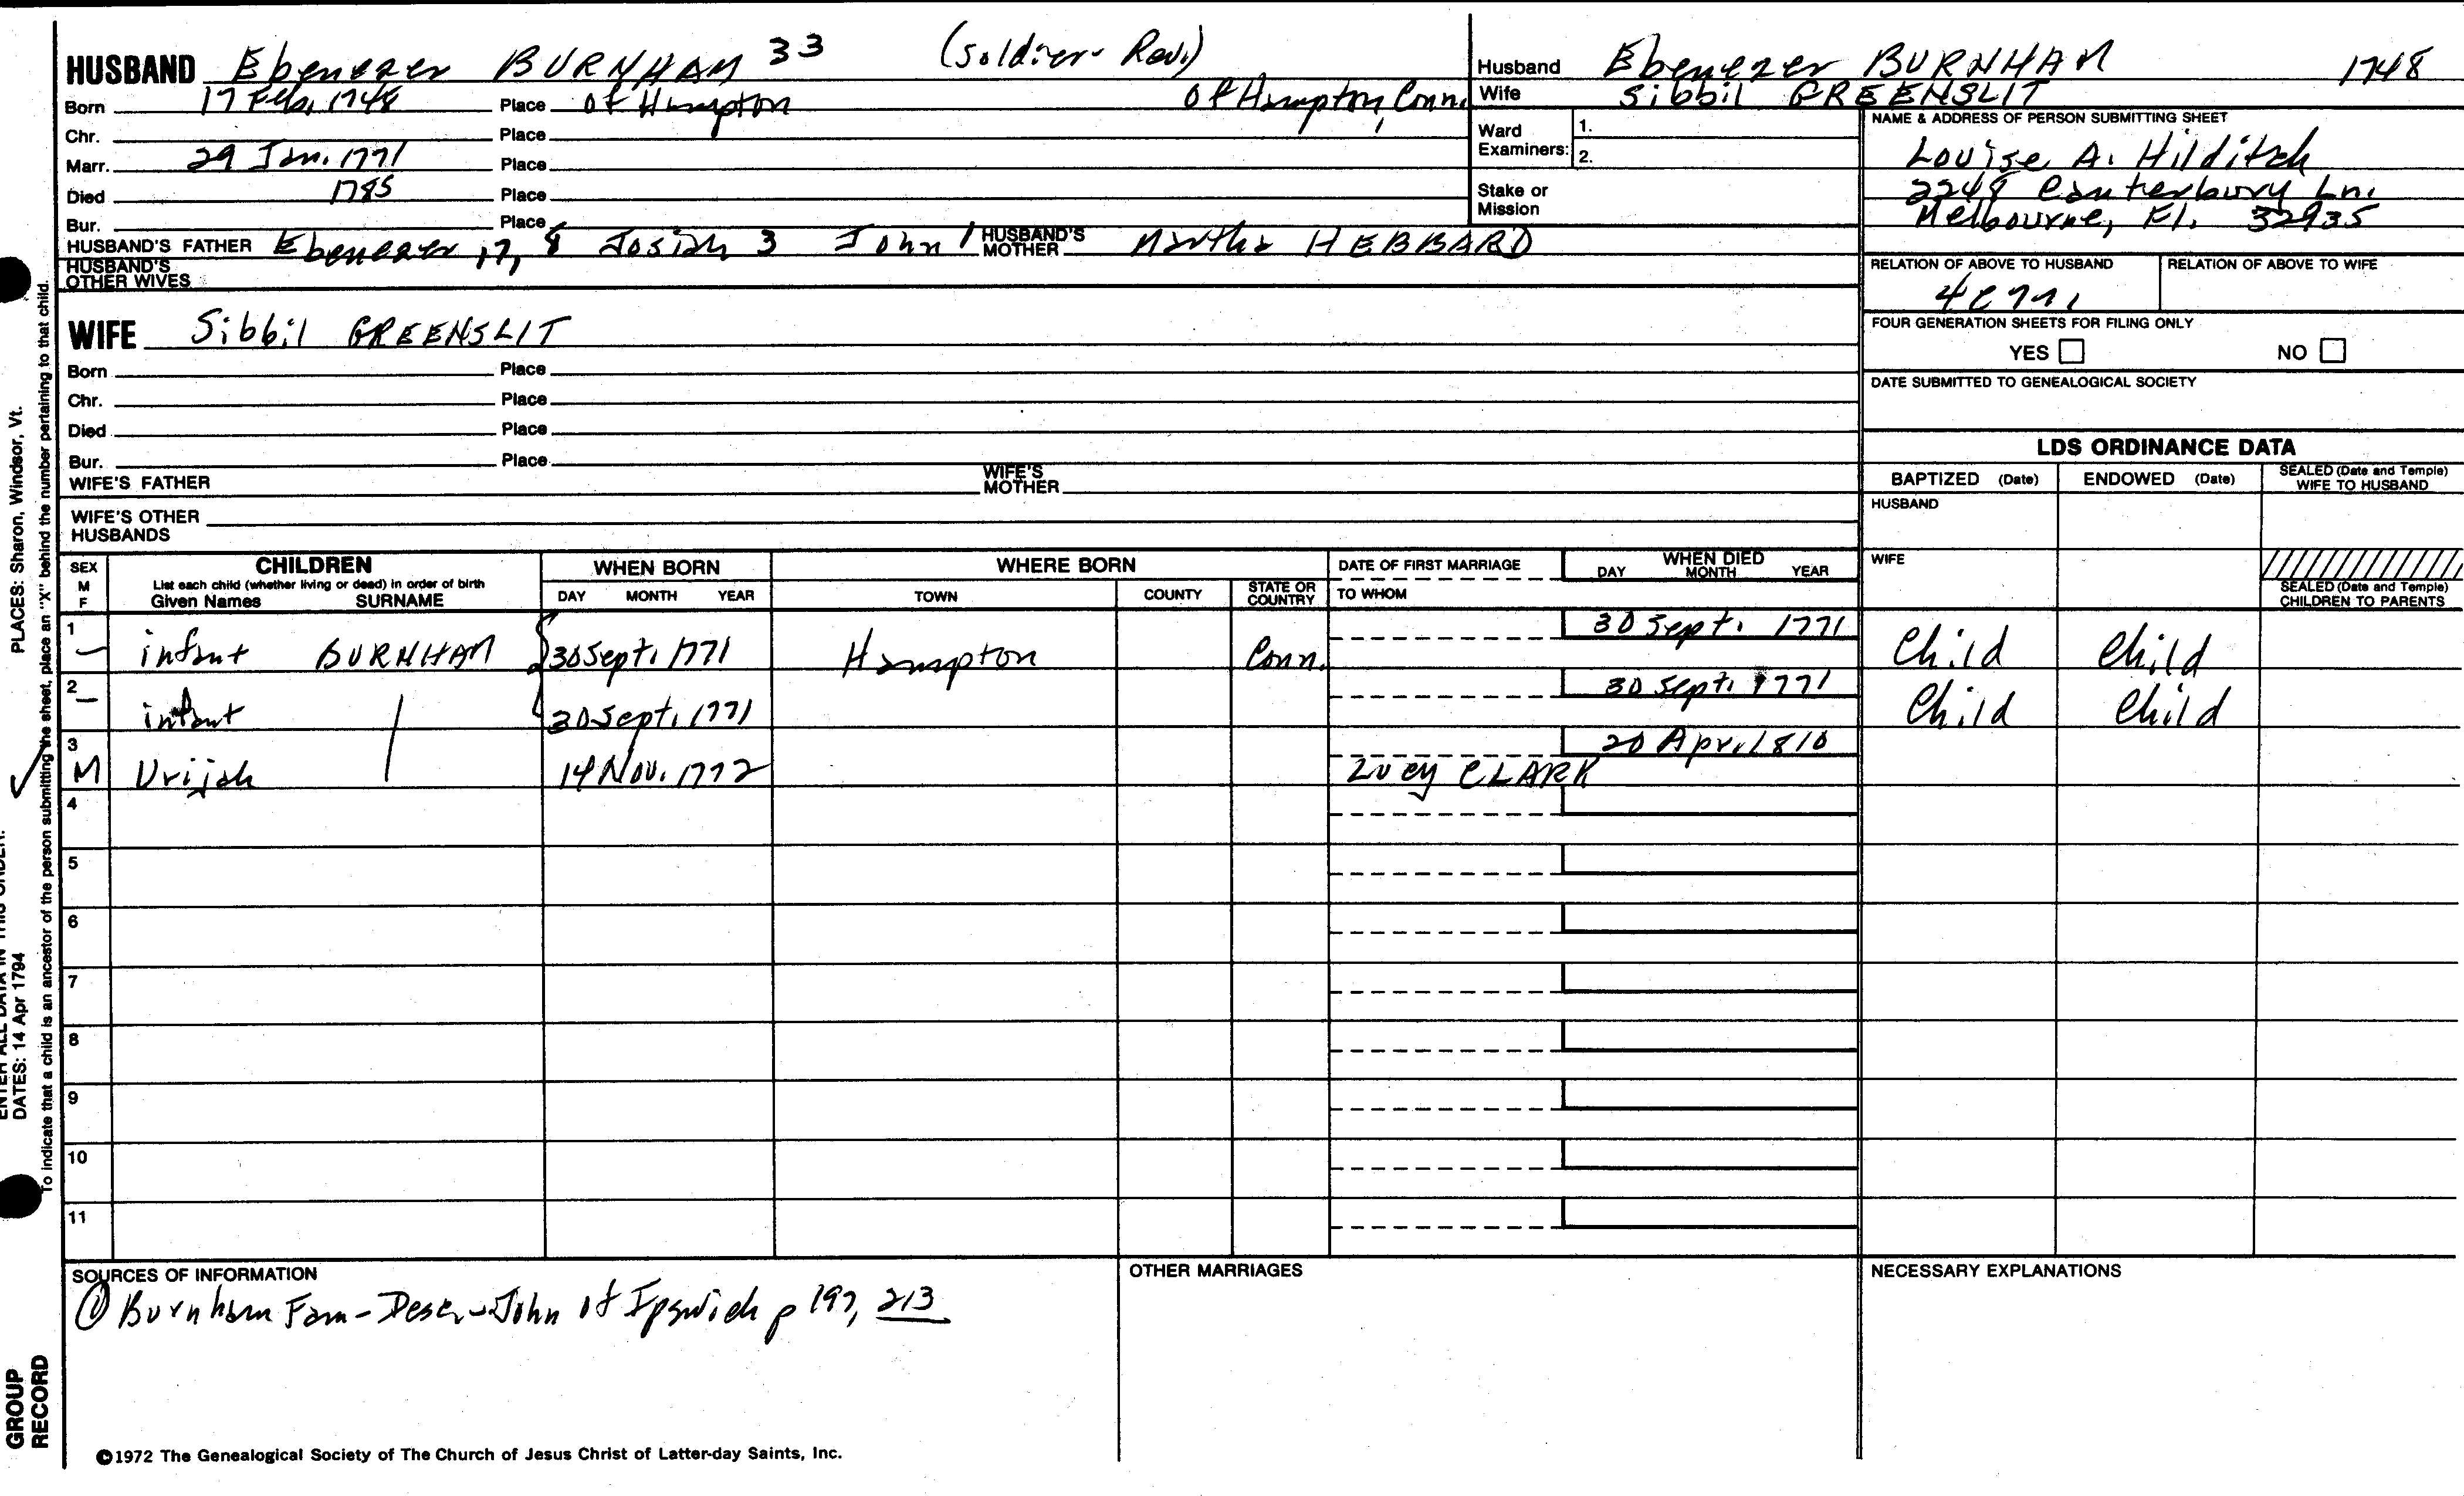 HUSBAND Ebenezer BURNHAM 33 (Soldier- Rev.)
Born 17 Feb. 1748 Place of Hampton of Hampton, Conn.
Chr. Place
Marr. 29 Jan. 1771 Place
Died 1785 Place
Bur. Place
HUSBAND'S FATHER Ebenezer 17, 8 Josiah 3 John 1 HUSBAND'S MOTHER Martha HEBBARD
HUSBAND'S OTHER WIVES
Husband Ebenezer BURNHAM 1748
Wife Sibbil GREENSLIT
Ward Examiners: 1.
2.
Stake or Mission
NAME & ADDRESS OF PERSON SUBMITTING SHEET
Louise A. Hilditch
2248 Canterbury Ln.
Melbourne, Fl. 32935
RELATION OF ABOVE TO HUSBAND RELATION OF ABOVE TO WIFE
FOUR GENERATION SHEETS FOR FILING ONLY
YES NO
DATE SUBMITTED TO GENEALOGICAL SOCIETY
WIFE Sibbil GREENSLIT
Born Place
Chr. Place
Died Place
Bur. Place
WIFE'S FATHER WIFE'S MOTHER
WIFE'S OTHER HUSBANDS
LDS ORDINANCE DATA
BAPTIZED (Date) ENDOWED (Date) SEALED (Date and Temple) WIFE TO HUSBAND
HUSBAND
WIFE
SEALED (Date and Temple) CHILDREN TO PARENTS
SEX M F CHILDREN WHEN BORN WHERE BORN DATE OF FIRST MARRIAGE WHEN DIED
List each child (whether living or dead) in order of birth
Given Names SURNAME DAY MONTH YEAR TOWN COUNTY STATE OR COUNTRY TO WHOM DAY MONTH YEAR
1 30 Sept. 1771
— infant BURNHAM 30 Sept. 1771 Hampton Conn. Child Child
2 30 Sept. 1771
— infant 30 Sept. 1771 Child Child
3 20 Apr. 1810
M Urijah 14 Nov. 1772 Lucy CLARK
4
5
6
7
8
9
10
11
SOURCES OF INFORMATION
① Burnham Fam - Desc. John of Ipswich p 197, 213
OTHER MARRIAGES
NECESSARY EXPLANATIONS
©1972 The Genealogical Society of The Church of Jesus Christ of Latter-day Saints, Inc.
PLACES: Sharon, Windsor, Vt.
DATES: 14 Apr 1794
To indicate that a child is an ancestor of the person submitting the sheet, place an "X" behind the number pertaining to that child.
GROUP RECORD